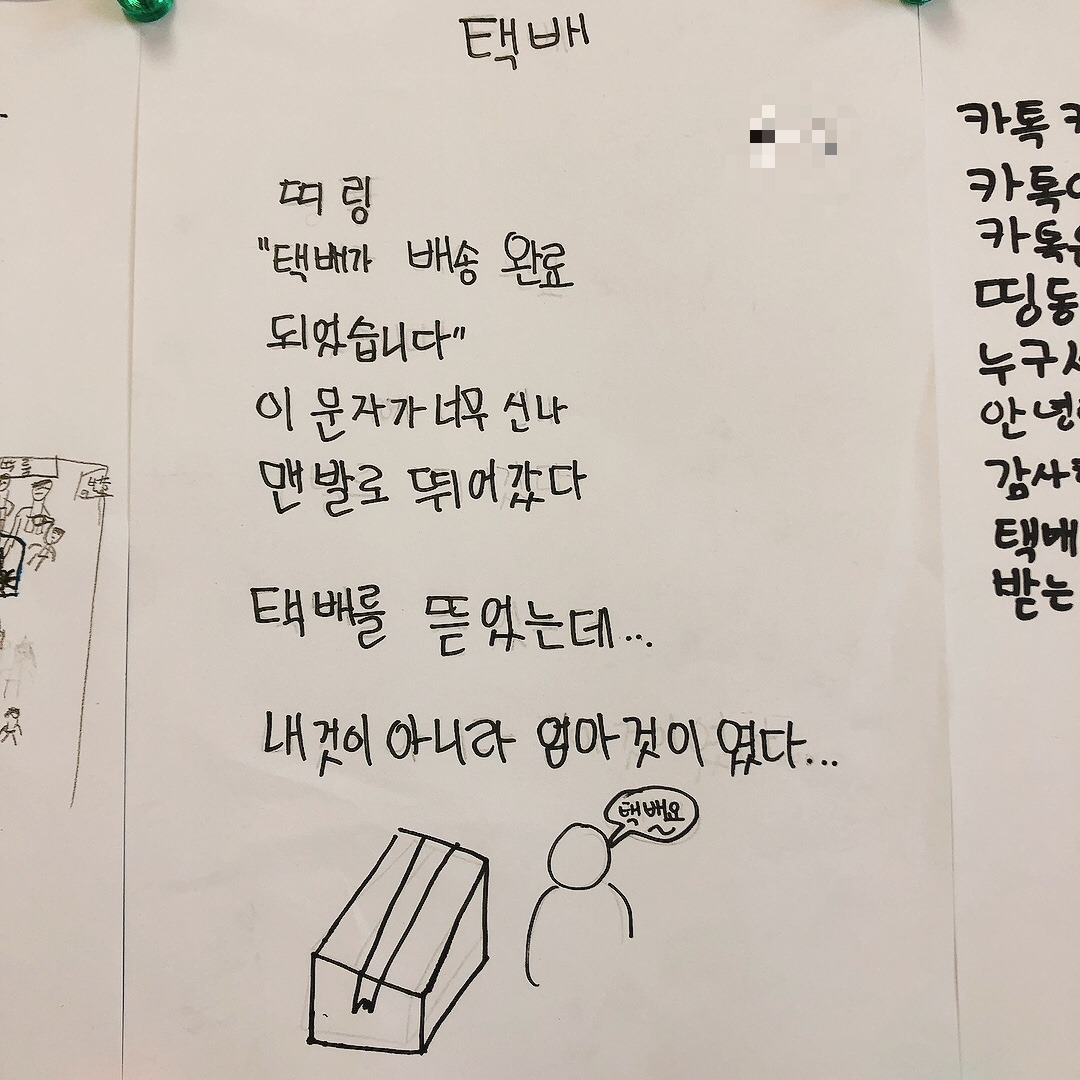 택배
띠링
"택배가 배송 완료
되었습니다"
이 문자가 너무 신나
맨발로 뛰어갔다
택배를 뜯었는데...
내것이 아니라 엄마것이 였다...
택밴요
카톡
카톡
카톡
띵동
누구
안녕
감사
택배
받는